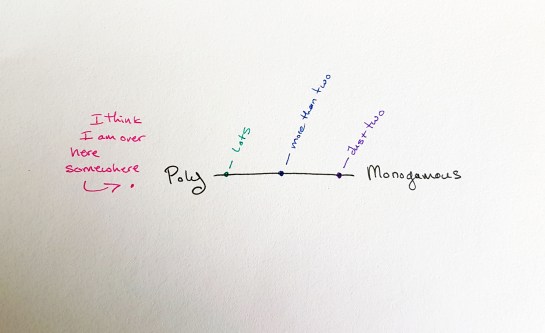 I think
I am over
here
somewhere
Poly
Lots
more than two
Just two
Monogamous